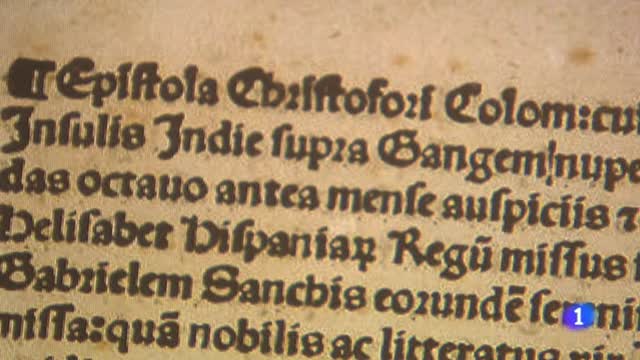 ¶ Epiſtola Chꝛiſtofoꝛi Colom: cu
Inſulis Indie ſupꝛa Gangem nupe
das octauo antea menſe auſpiciis ⁊
Heliſabet Hiſpaniaꝝ Regū miſſus
Gabꝛielem Sanchis eoꝛundē ſereni
miſſa: quā nobilis ac litteratus
1